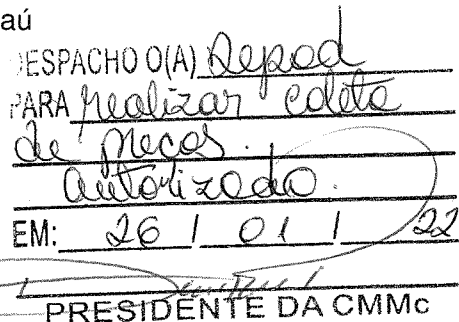 aú
DESPACHO O(A) Depad
PARA realizar coleta
de preços.
autorizado.
EM: 26 / 01 / 22
PRESIDENTE DA CMMc